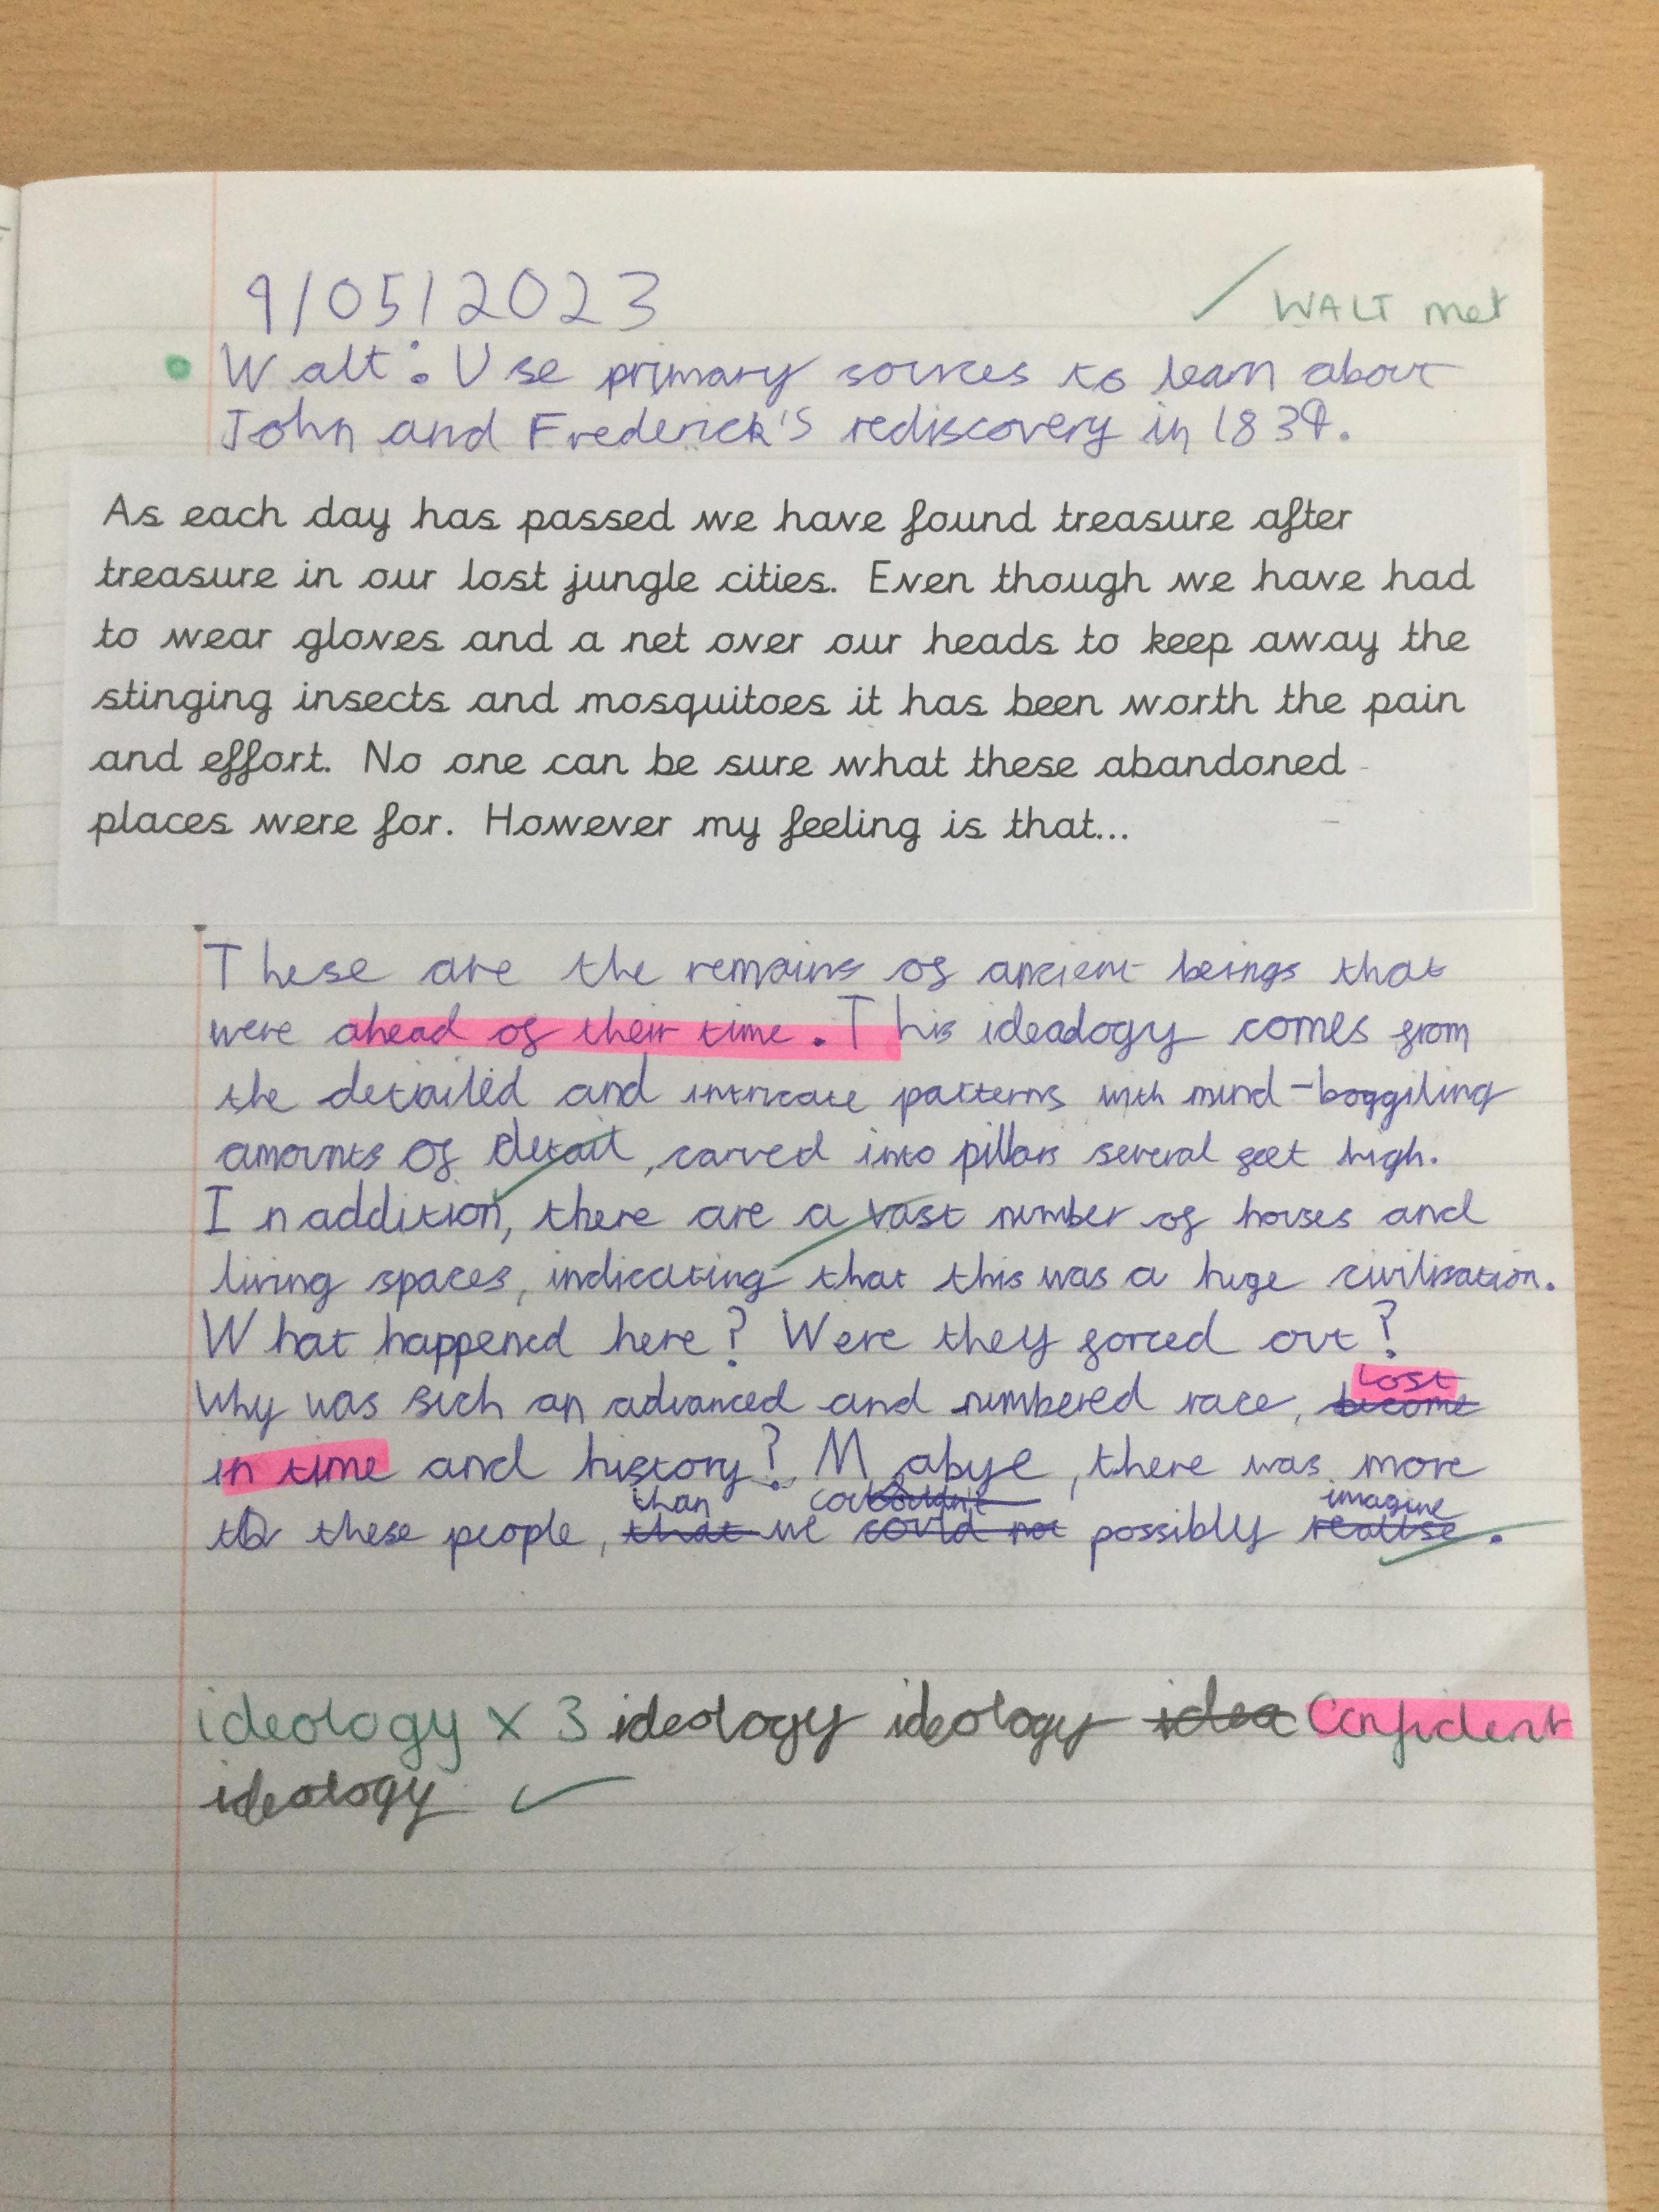 9/05/2023
WALT met
Walt: Use primary sources to learn about
John and Frederick's rediscovery in 1839.
As each day has passed we have found treasure after
treasure in our lost jungle cities. Even though we have had
to wear gloves and a net over our heads to keep away the
stinging insects and mosquitoes it has been worth the pain
and effort. No one can be sure what these abandoned
places were for. However my feeling is that...
These are the remains of ancient beings that
were ahead of their time. This ideadogy comes from
the detailed and intricate patterns with mind-boggiling
amounts of detail, carved into pillars several feet high.
In addition, there are a vast number of houses and
living spaces, indicating that this was a huge civilisation.
What happened here? Were they forced out?
Why was such an advanced and numbered race, become lost
in time and history? Mabye, there was more
to these people, that than we could not couldn't possibly realise imagine.
ideology x 3 ideology ideology idea Confident
ideology